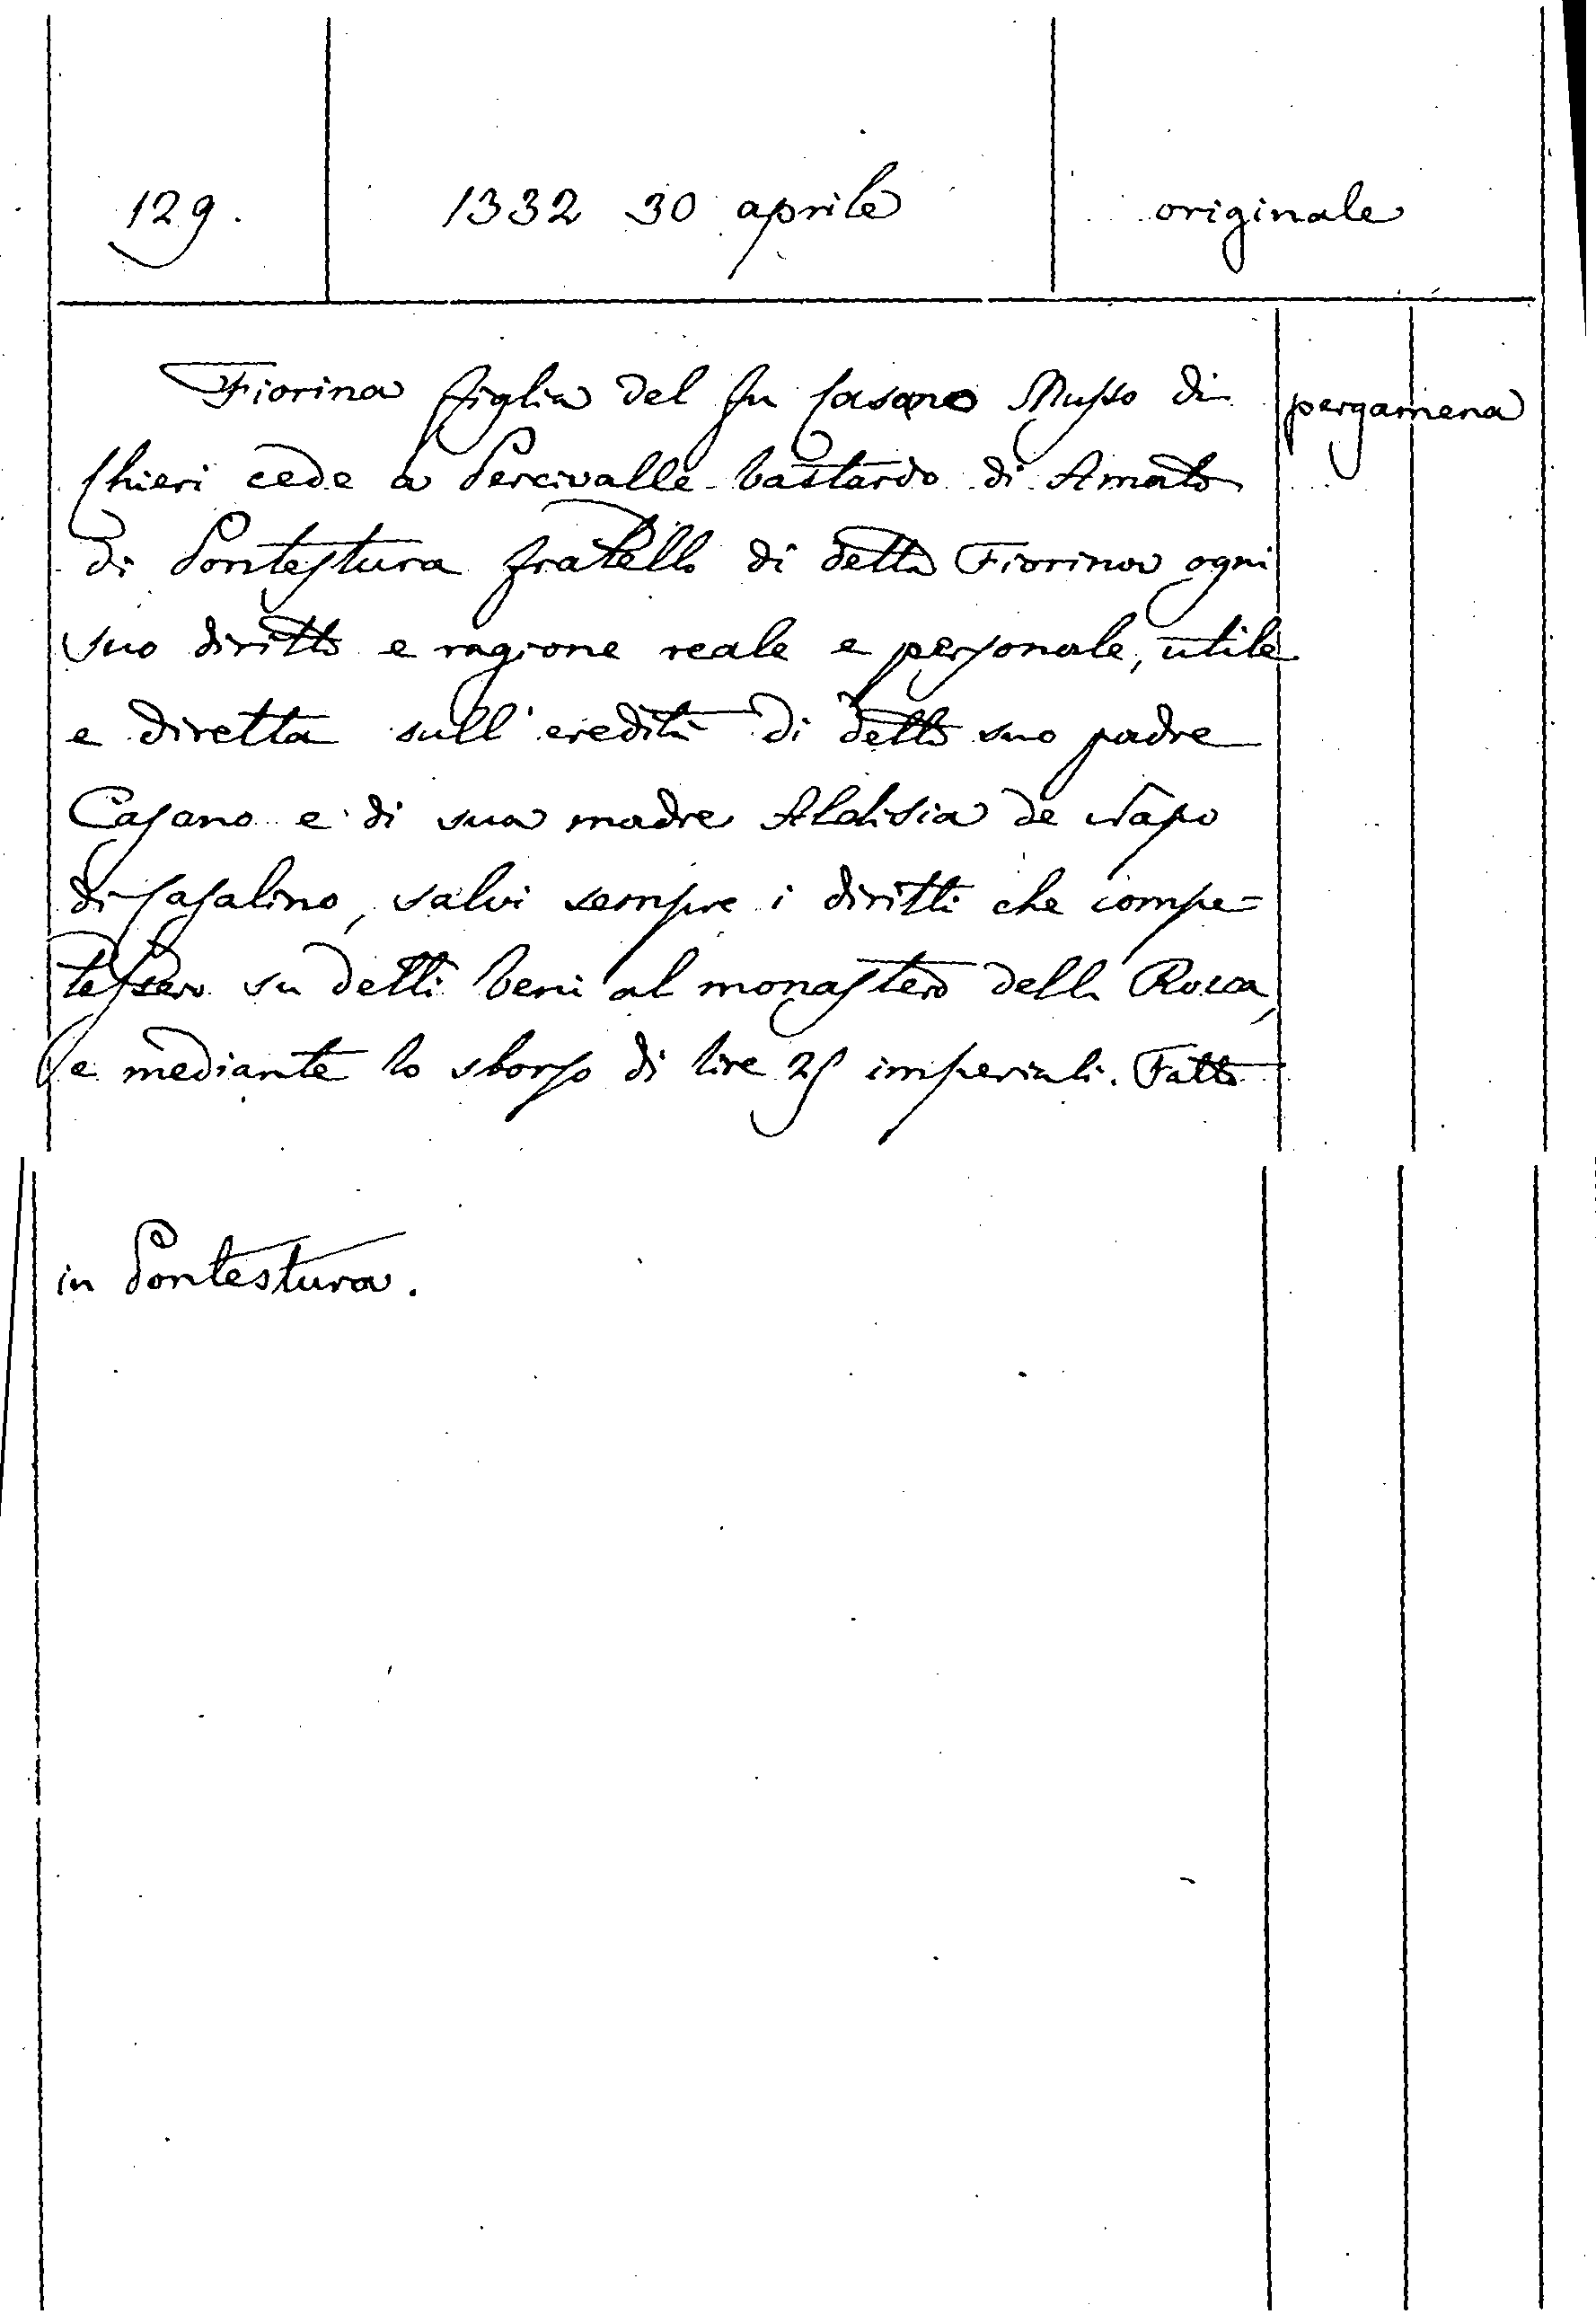 129.
1332 30 aprile
originale
Fiorina figlia del fu Casano Musso di
pergamena
Chieri cede a Percivalle bastardo di Amato
di Pontestura fratello di detta Fiorina ogni
suo diritto e ragione reale e personale, utile
e diretta sull'eredità di detto suo padre
Casano e di sua madre Aldisia de
di Casalino, salvi sempre i diritti che compe=
tessero su detti beni al monastero della Rocca,
e mediante lo sborso di lire 25 imperiali. Fatto
in Pontestura.